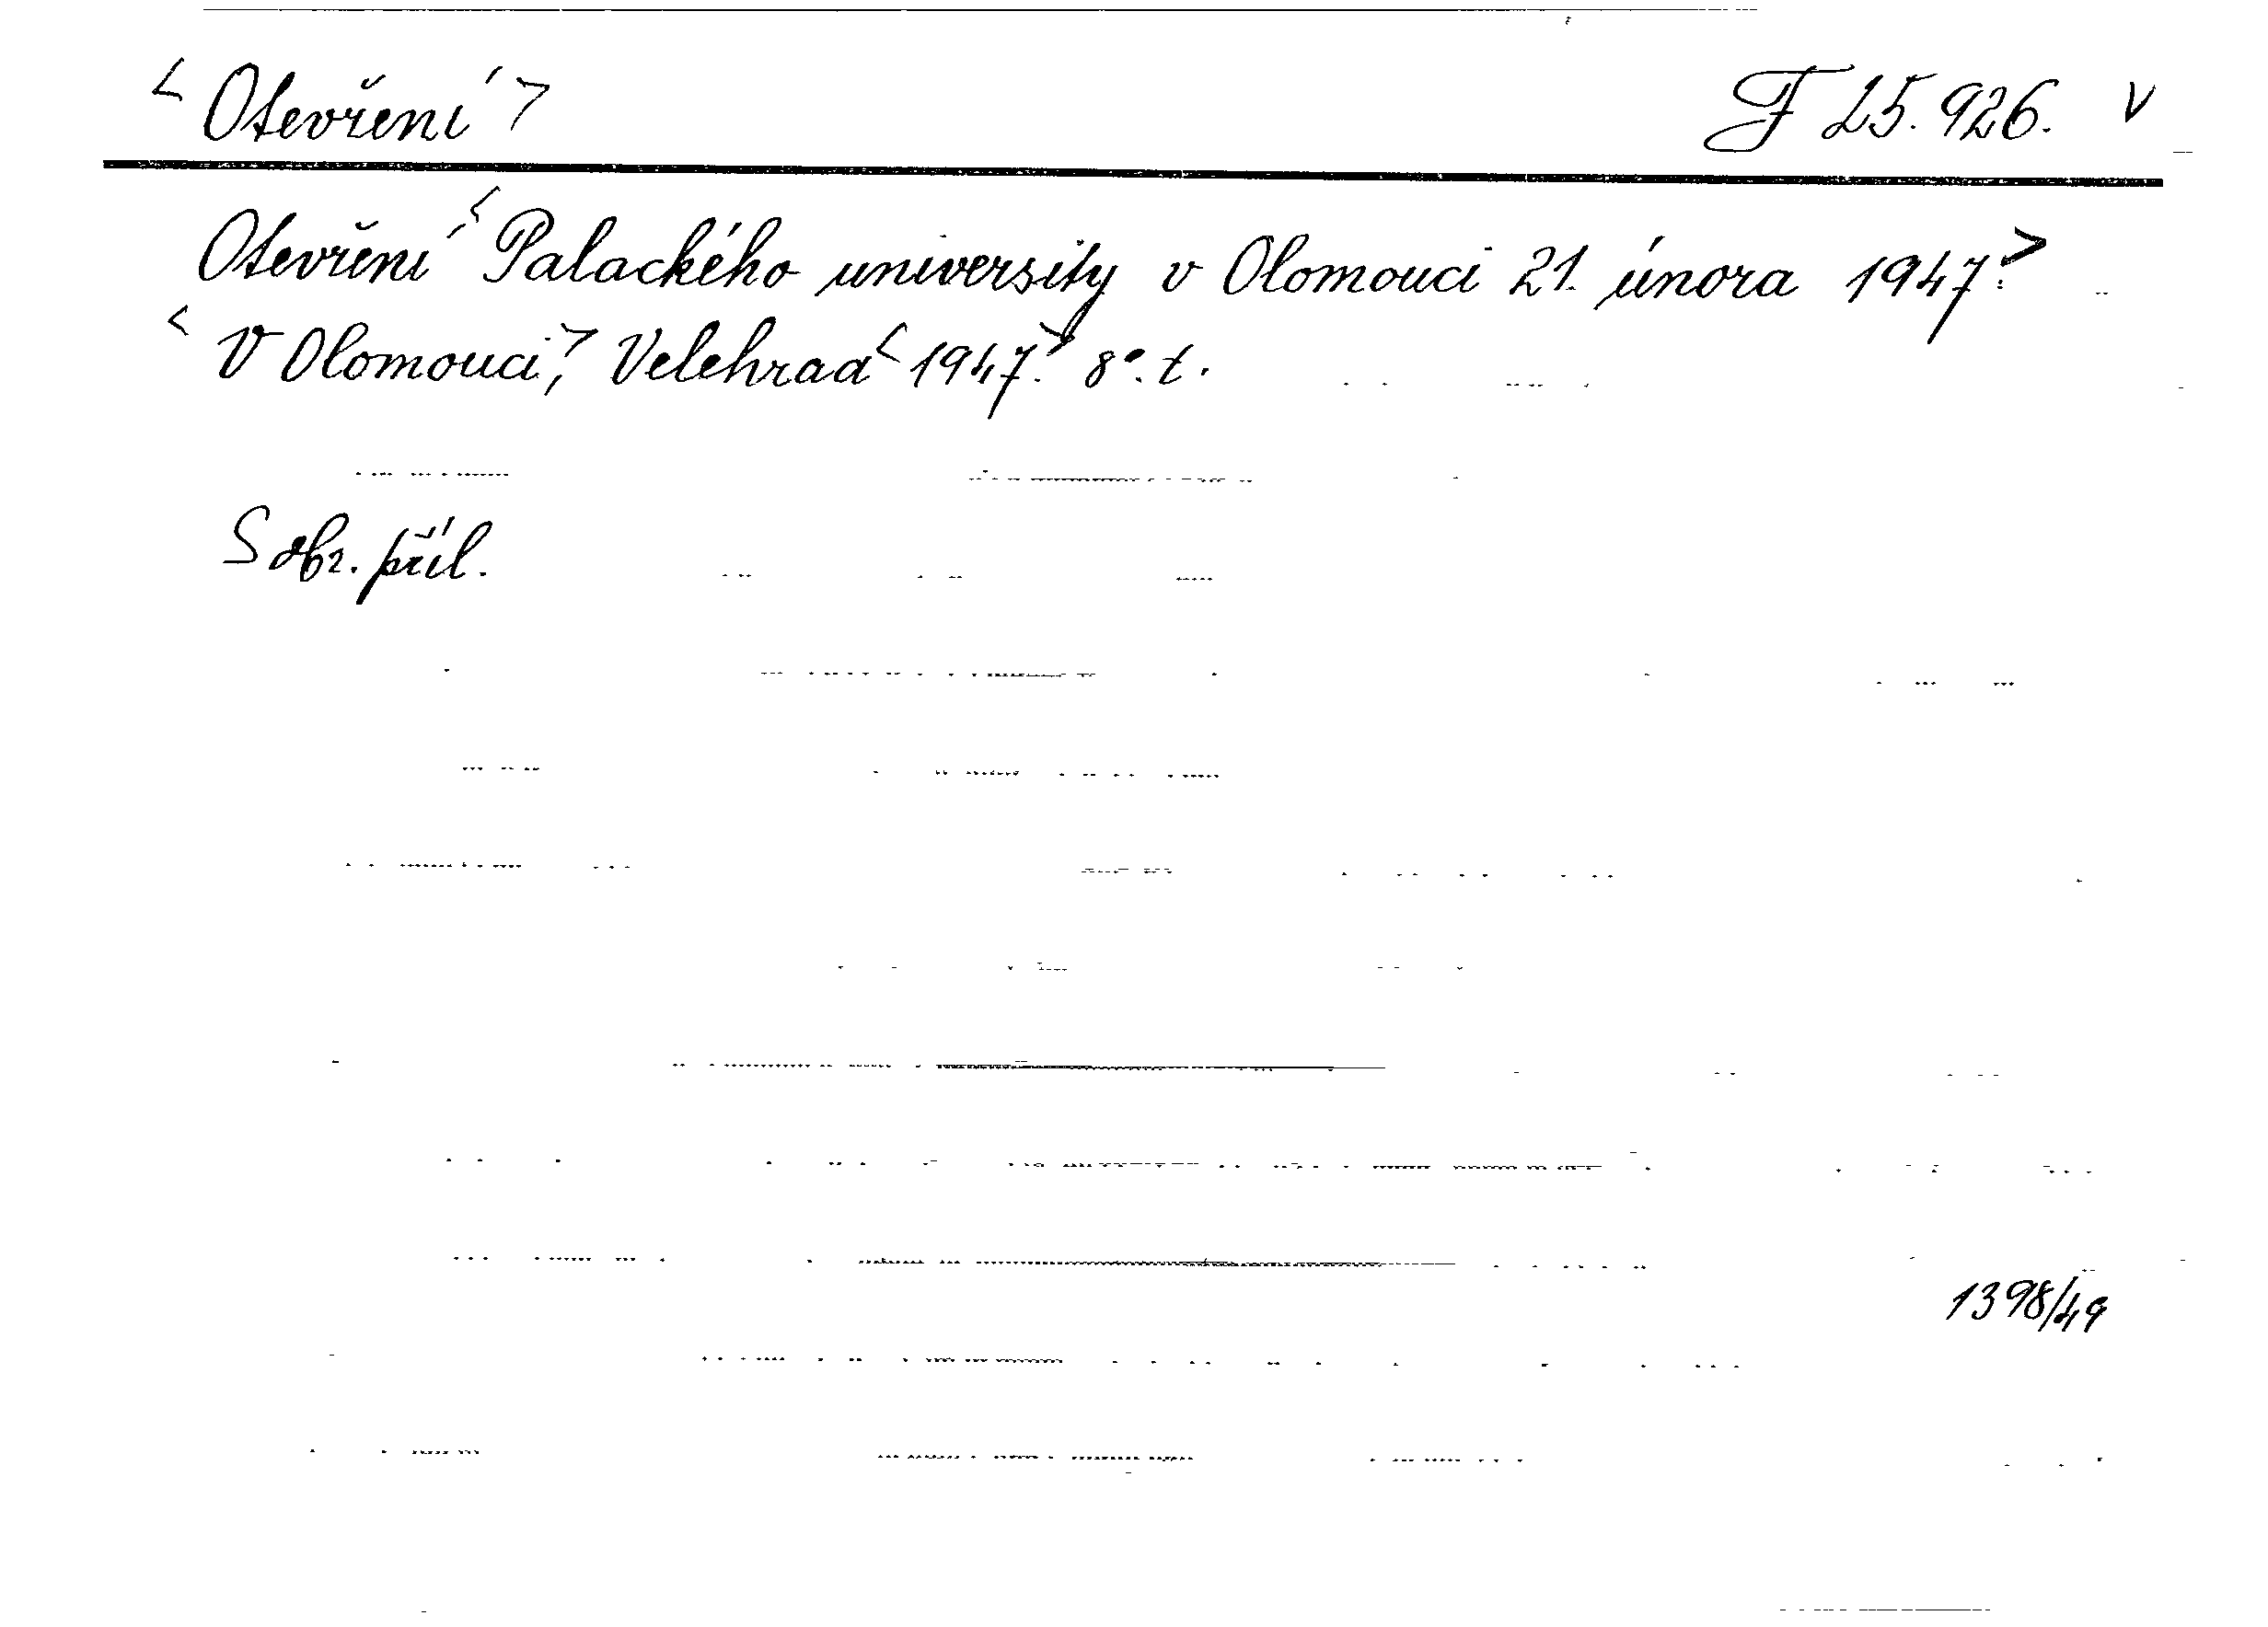 <Otevření> F 25.926. v
Otevření <Palackého university v Olomouci 21. února 1947.>
<V Olomouci,> Velehrad <1947.> 8°. t.
S obr. příl.
1398/49